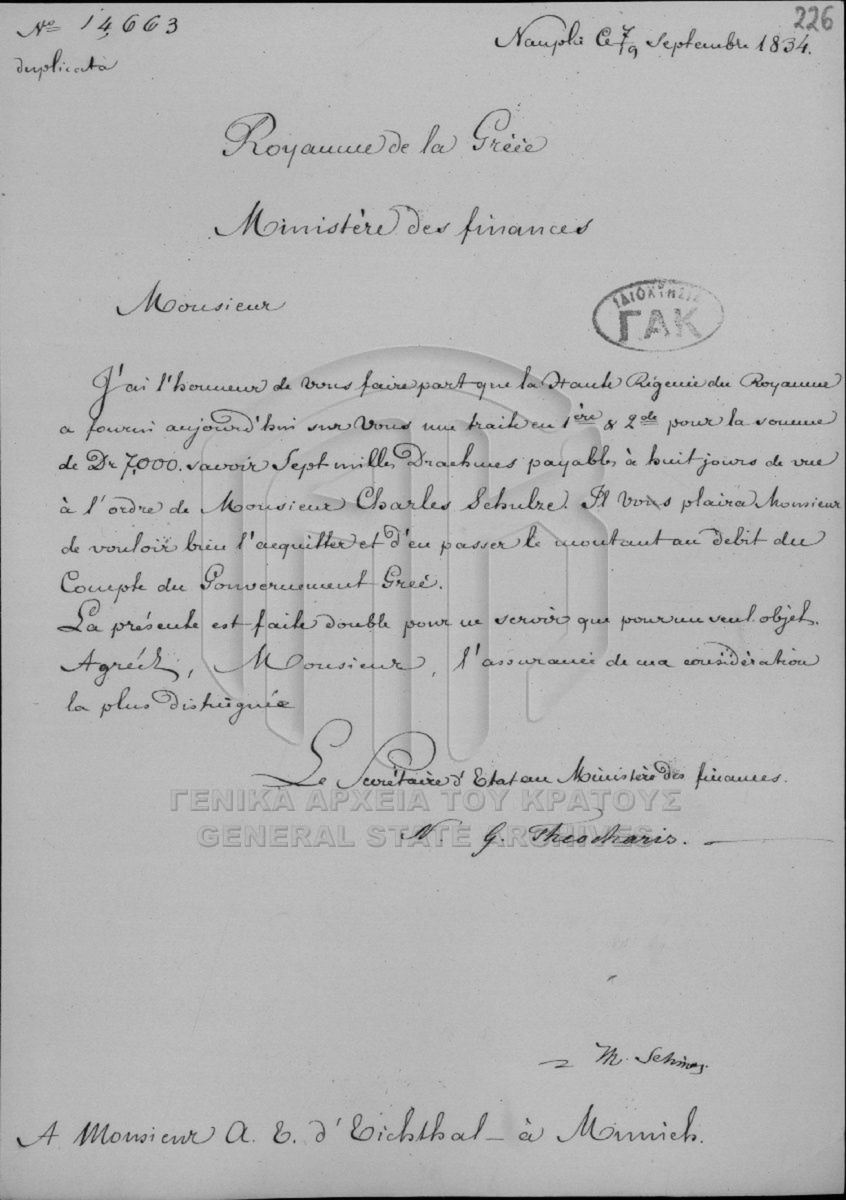 226
No 14663
Nauplie Ce 7/9 Septembre 1834.
duplicata
Royaume de la Grèce
Ministère des finances
Monsieur
ΙΔΙΟΚΤΗΣΙΣ
ΓΑΚ
J'ai l'honneur de vous faire part que la Haute Régence du Royaume
a fourni aujourd'hui sur Vous une traite en 1ère & 2de pour la somme
de Dr 7,000. savoir Sept milles Drachmes payables à huit jours de vue
à l'ordre de Monsieur Charles Schulze. Il vous plaira Monsieur
de vouloir bien l'acquitter et d'en passer le montant au débit du
Compte du Gouvernement Grec.
La présente est faite double pour ne servir que pour un seul objet.
Agréez, Monsieur, l'assurance de ma considération
la plus distinguée
Le Secrétaire d'Etat au Ministère des finances.
ΓΕΝΙΚΑ ΑΡΧΕΙΑ ΤΟΥ ΚΡΑΤΟΥΣ
GENERAL STATE ARCHIVES
N. G. Theocharis.
M. Schinas
A Monsieur A. E. d'Eichthal - à Munich.